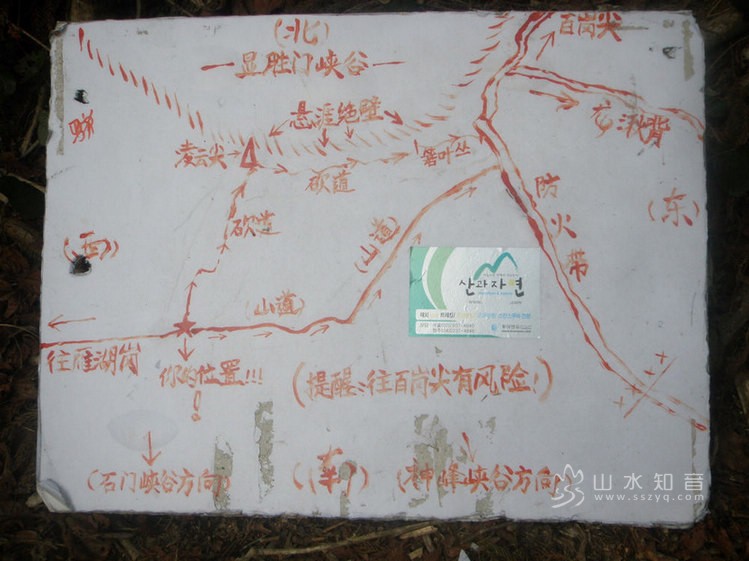 (北)
百岗尖
一显胜门峡谷一
悬涯绝壁
龙湫背
凌云尖
砍道
箬叶丛
防火带
(东)
砍道
(山道)
(西)
산과자연
山道
往雁湖岗
你的位置!!!
(提醒:往百岗尖有风险!)
(石门峡谷方向)
(南)
(神峰峡谷方向)
山水知音
www.sszyq.com